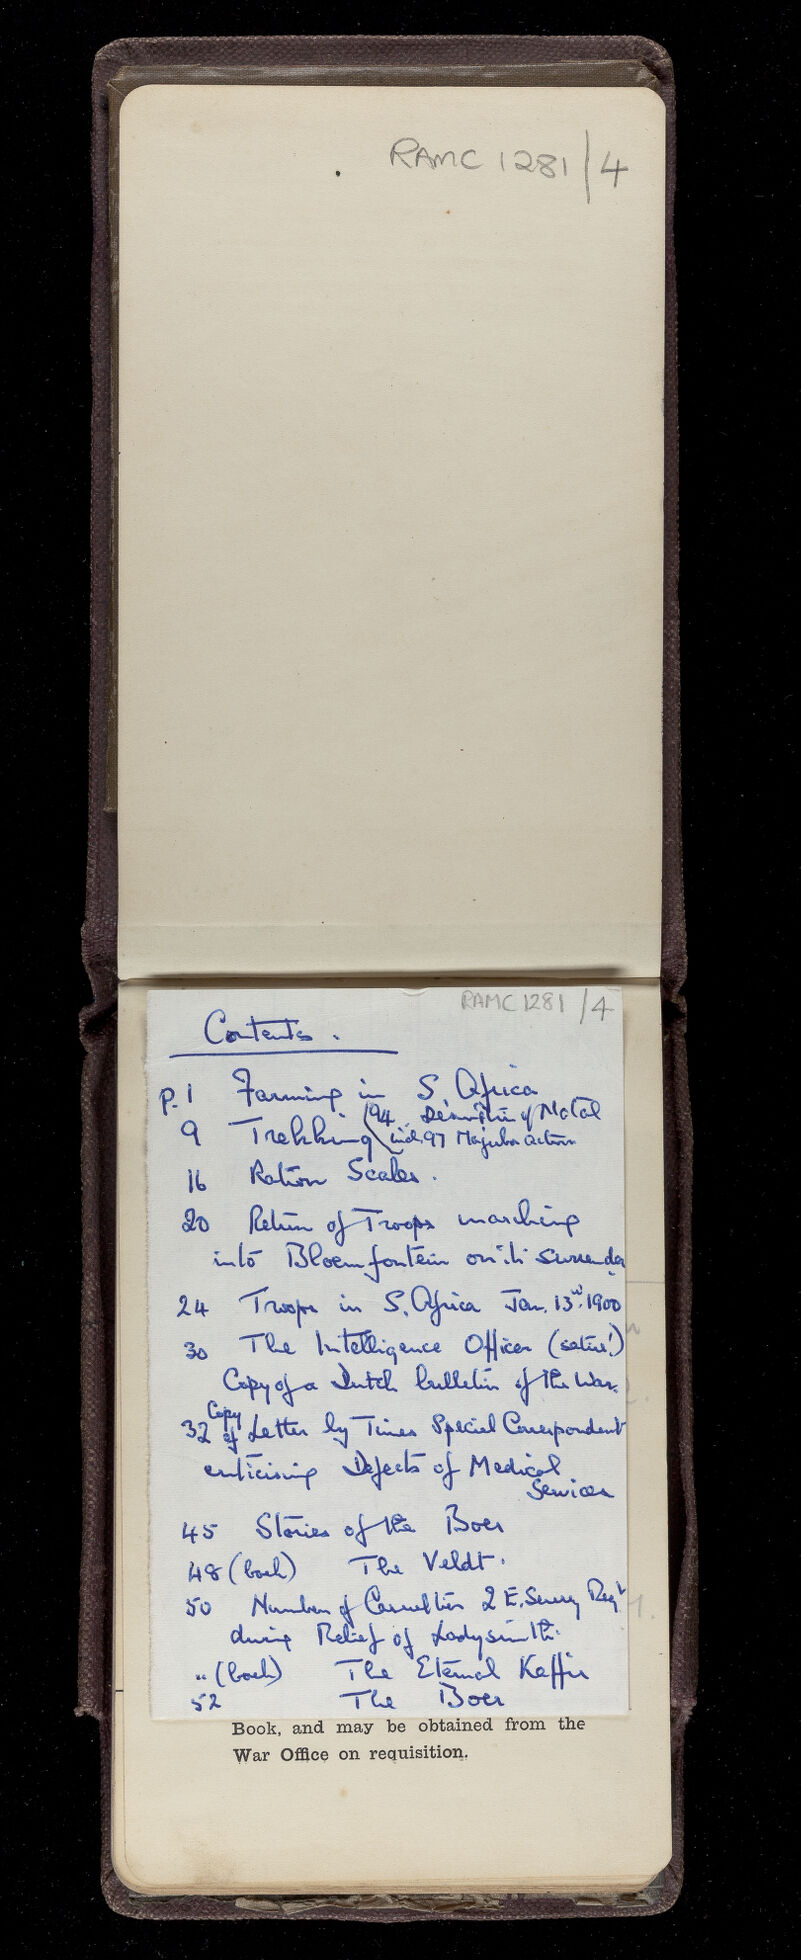 RAMC 1281/4
RAMC 1281/4
Contents.
p. 1 Farming in S Africa
9 Trekking (94 of Natal
incl. 97 Majuba action
16 Ration Scales.
20 Return of Troops marching
into Bloemfontein on its surrender
24 Troops in S. Africa Jan. 13th. 1900
30 The Intelligence Officer (satire!)
Copy of a Dutch bulletin of the War.
32 Copy of Letter by Times Special Correspondent
criticising Defects of Medical
Services
45 Stories of the Boer
48 (back) The Veldt.
50 Number of Casualties 2 E. Surrey Regt
during Relief of Ladysmith.
" (back) The Eternal Kaffir
52 The Boer
Book, and may be obtained from the
War Office on requisition.